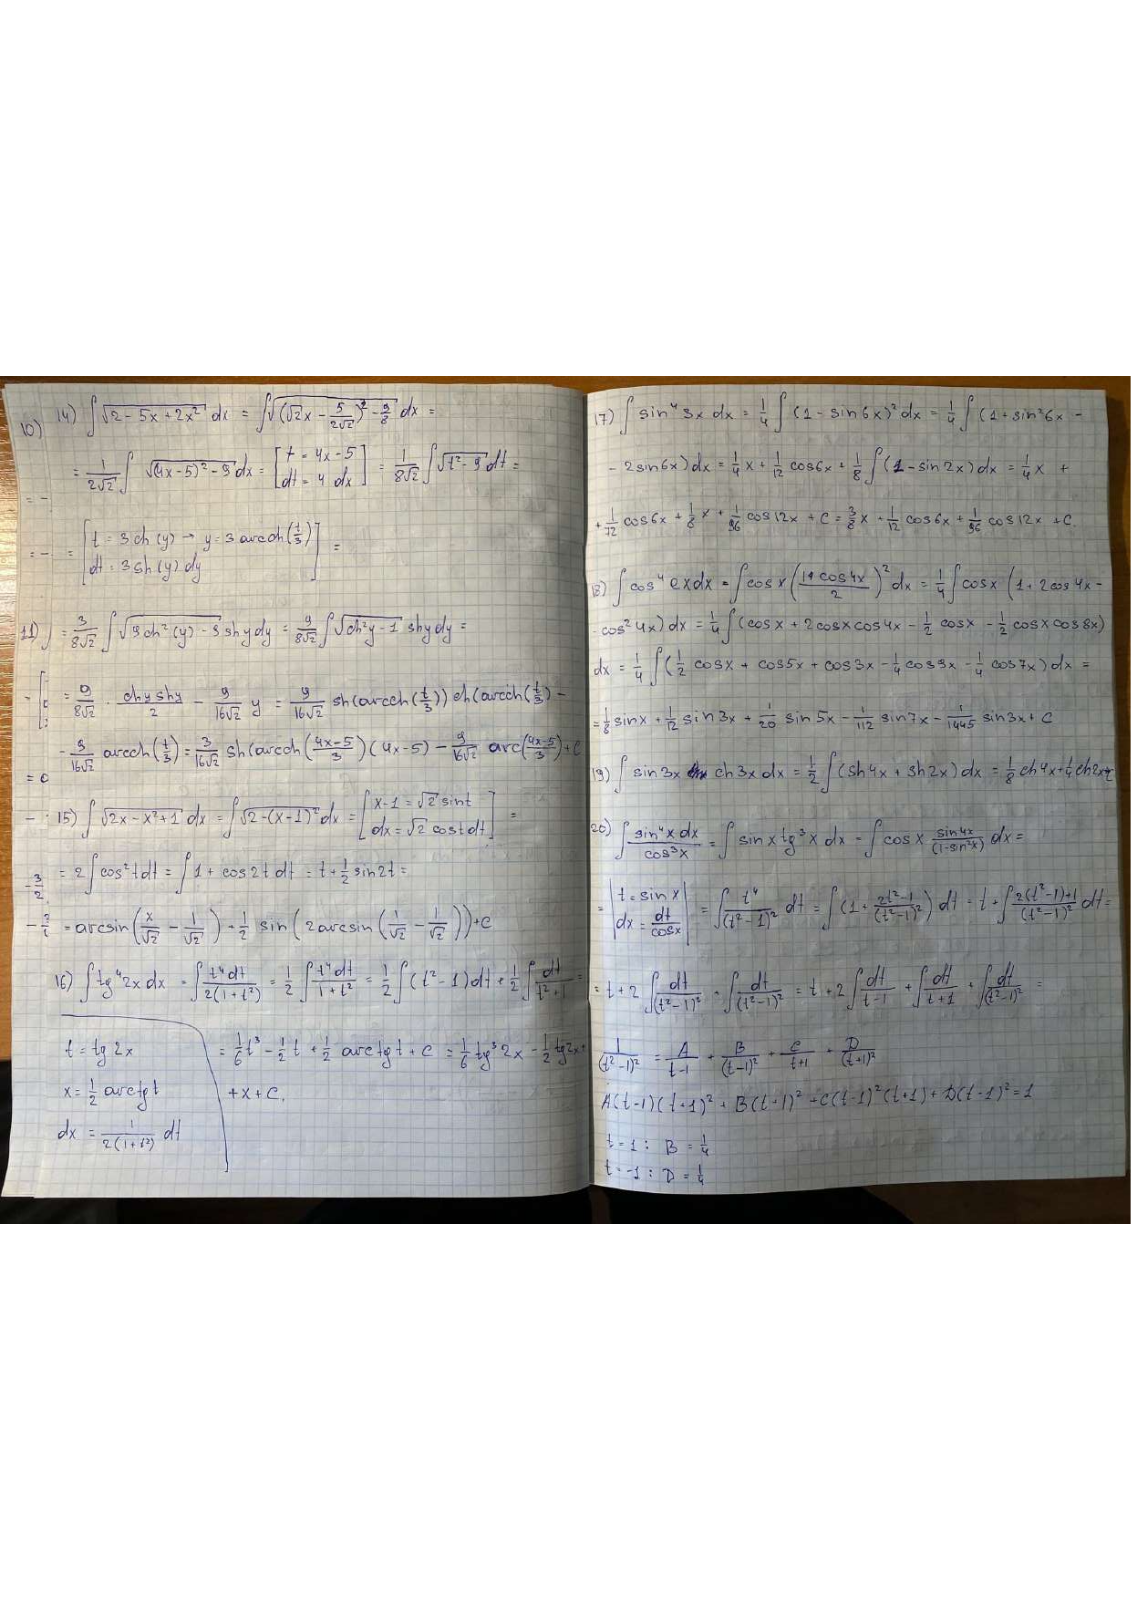 14) ∫√(2 - 5x + 2x²) dx = ∫√((√2x - 5/(2√2))² - 9/8) dx =
10)
= 1/(2√2) ∫ √((4x-5)² - 9) dx = [t = 4x - 5; dt = 4 dx] = 1/(8√2) ∫√(t² - 9) dt =
= [t = 3 ch(y) → y = 3 arcch(t/3); dt = 3 sh(y) dy] =
11)
= 3/(8√2) ∫ √(9ch²(y) - 9) shy dy = 9/(8√2) ∫√(ch²y - 1) shy dy =
= 9/(8√2) · (chy shy)/2 - 9/(16√2) y = 9/(16√2) sh(arcch(t/3)) ch(arcch(t/3) -
- 9/(16√2) arcch(t/3) = 3/(16√2) sh(arcch((4x-5)/3)(4x-5) - 9/(16√2) arc((4x-5)/3) + C
15) ∫√(2x - x² + 1) dx = ∫√(2-(x-1)²) dx = [x-1 = √2 sint; dx = √2 cost dt] =
= 2∫cos²t dt = ∫1 + cos2t dt = t + 1/2 sin2t =
= arcsin(x/√2 - 1/√2) + 1/2 sin(2arcsin(1/√2 - 1/√2)) + C
16) ∫tg⁴2x dx = ∫t⁴dt/(2(1+t²)) = 1/2 ∫t⁴dt/(1+t²) = 1/2 ∫(t² - 1)dt + 1/2 ∫dt/(t²+1) =
t = tg2x
= 1/6 t³ - 1/2 t + 1/2 arctgt + C = 1/6 tg³2x - 1/2 tg2x +
x = 1/2 arctgt
+ x + C.
dx = 1/(2(1+t²)) dt
17) ∫sin⁴3x dx = 1/4 ∫(1 - sin6x)² dx = 1/4 ∫(1 + sin²6x -
- 2sin6x) dx = 1/4 x + 1/12 cos6x + 1/8 ∫(1 - sin2x) dx = 1/4 x +
+ 1/12 cos6x + 1/8 x + 1/96 cos12x + C = 3/8 x + 1/12 cos6x + 1/96 cos12x + C.
18) ∫cos⁴ xdx = ∫cosx((1+cos4x)/2)² dx = 1/4 ∫cosx (1 + 2cos4x -
- cos²4x) dx = 1/4 ∫(cosx + 2cosxcos4x - 1/2 cosx - 1/2 cosxcos8x)
dx = 1/4 ∫(1/2 cosx + cos5x + cos3x - 1/4 cos9x - 1/4 cos7x) dx =
= 1/8 sinx + 1/12 sin3x + 1/20 sin5x - 1/112 sin7x - 1/1445 sin3x + C
19) ∫sin3x ch3x dx = 1/2 ∫(sh4x + sh2x) dx = 1/8 ch4x + 1/4 ch2x +
20) ∫sin⁴x dx/cos³x = ∫sinx tg³x dx = ∫cosx sin4x/(1-sin²x) dx =
= |t = sinx; dx = dt/cosx| = ∫t⁴/(t²-1)² dt = ∫(1 + (2t²-1)/(t²-1)²) dt = t + ∫(2(t²-1)+1)/(t²-1)² dt =
= t + 2∫dt/(t²-1)² + ∫dt/(t²-1)² = t + 2∫dt/(t-1) + ∫dt/(t+1) + ∫dt/(t²-1)² =
1/(t²-1)² = A/(t-1) + B/(t-1)² + C/(t+1) + D/(t+1)²
A(t-1)(t+1)² + B(t+1)² + C(t-1)²(t+1) + D(t-1)² = 1
t = 1 : B = 1/4
t = -1 : D = 1/4